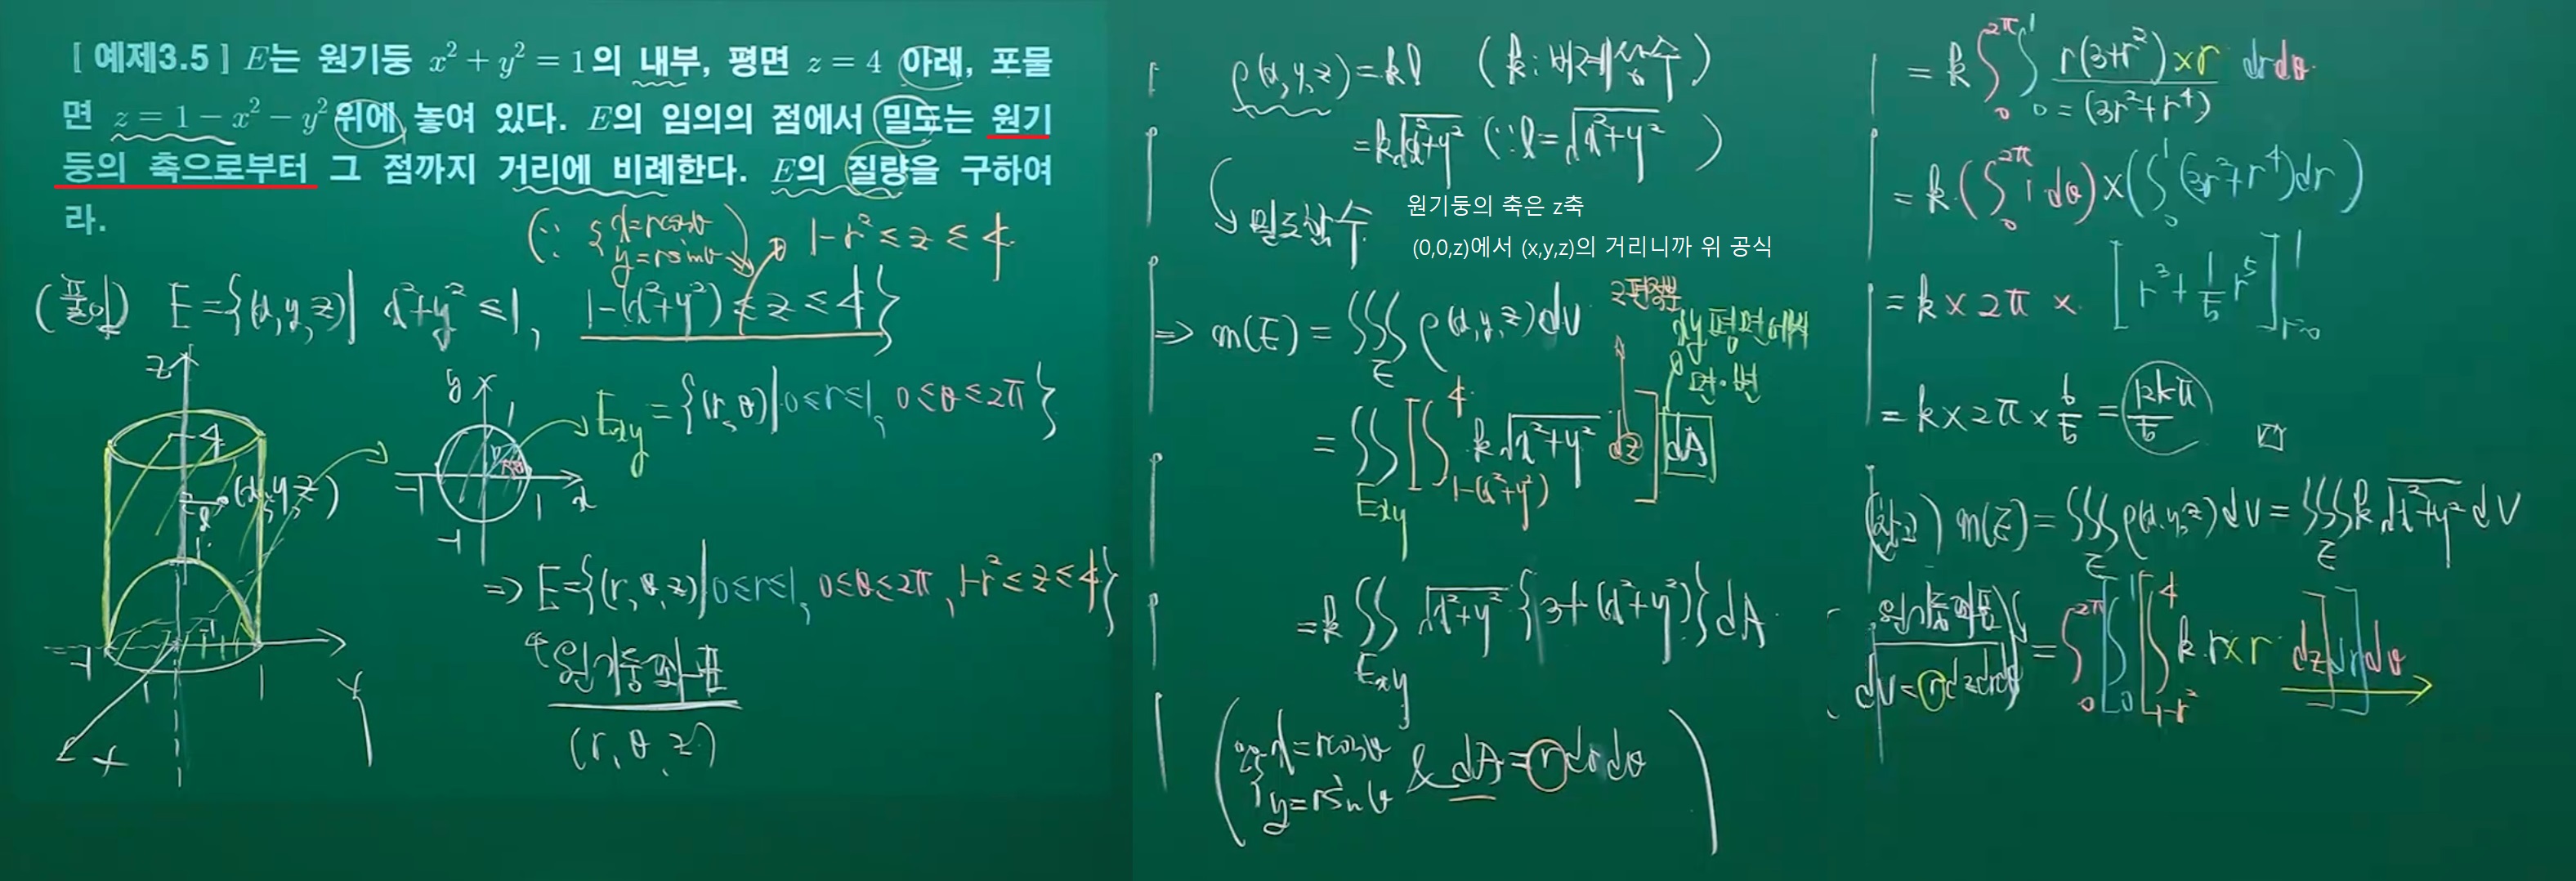 [ 예제3.5 ] E는 원기둥 x² + y² = 1의 내부, 평면 z = 4 아래, 포물
면 z = 1 − x² − y² 위에 놓여 있다. E의 임의의 점에서 밀도는 원기
둥의 축으로부터 그 점까지 거리에 비례한다. E의 질량을 구하여
라.
(∵ { x=rcosθ
y=rsinθ )
1-r² ≤ z ≤ 4
(풀이) E={(x,y,z)| x²+y² ≤1, 1-(x²+y²) ≤ z ≤ 4}
z
4
(x,y,z)
l
1
-1
1
1
y
x
y
1
-1
1
x
-1
Exy = {(r,θ)|0≤r≤1, 0≤θ≤2π}
=> E={(r,θ,z)|0≤r≤1, 0≤θ≤2π, 1-r²≤z≤4}
"원기둥좌표
(r,θ,z)
ρ(x,y,z)=kl (k: 비례상수)
=k√x²+y² (∵ l=√x²+y²)
밀도함수
원기둥의 축은 z축
(0,0,z)에서 (x,y,z)의 거리니까 위 공식
=> m(E) = ∭_E ρ(x,y,z)dV
z편적분
xy평면에서
= ∬_Exy [∫_{1-(x²+y²)}^4 k√x²+y² dz] dA
=k ∬_Exy √x²+y² {3+(x²+y²)}dA
( { x=rcosθ
y=rsinθ & dA=r dr dθ )
= k ∫_0^{2π} ∫_0^1 r(3+r²)×r dr dθ
=(3r²+r⁴)
= k·(∫_0^{2π} 1 dθ)×(∫_0^1 (3r²+r⁴)dr)
= k × 2π × [r³+1/5 r⁵]_{r=0}^1
= k × 2π × 6/5 = 12kπ/5 □
m(E)=∭_E ρ(x,y,z)dV=∭_E k√x²+y² dV
원기둥좌표
dV=r dz dr dθ
= ∫_0^{2π}[∫_0^1[∫_{1-r²}^4 k·r×r dz]dr]dθ